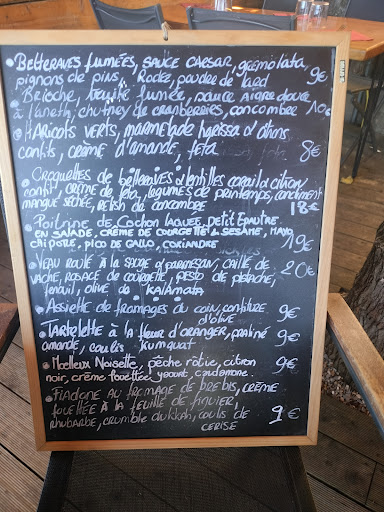 • Betteraves fumées, sauce caesar, gremolata,
pignons de pins, Rode, poudre de lard 9€
• Brioche, truite fumée, sauce aigre douce
à l'aneth, chutney de cranberries, concombre 10€
• Haricots verts, marmelade harissa d'oignons
confits, crème d'amande, feta 8€
• Croquettes de betteraves & lentilles corail & citron
confit, crème de feta, légumes de printemps, condiment
mangue séchée, relish de concombre 18€
• Poitrine de cochon laquée, petit épautre
en salade, crème de courgette & sésame, mayo
chipotle, pico de gallo, coriandre 19€
• Veau roulé à la sauge & parmesan, caillé de
vache, rosace de courgette, pesto de pistache,
fenouil, olive de Kalamata 20€
• Assiette de fromages du coin, confiture
d'olive 9€
• Tartelette à la fleur d'oranger, praliné
amande, coulis kumquat 9€
• Moelleux Noisette, pêche rôtie, citron
noir, crème fouettée yaourt, cardamome 9€
• Fiadone au fromage de brebis, crème
fouettée à la feuille de figuier,
rhubarbe, crumble dukkah, coulis de
cerise 9€